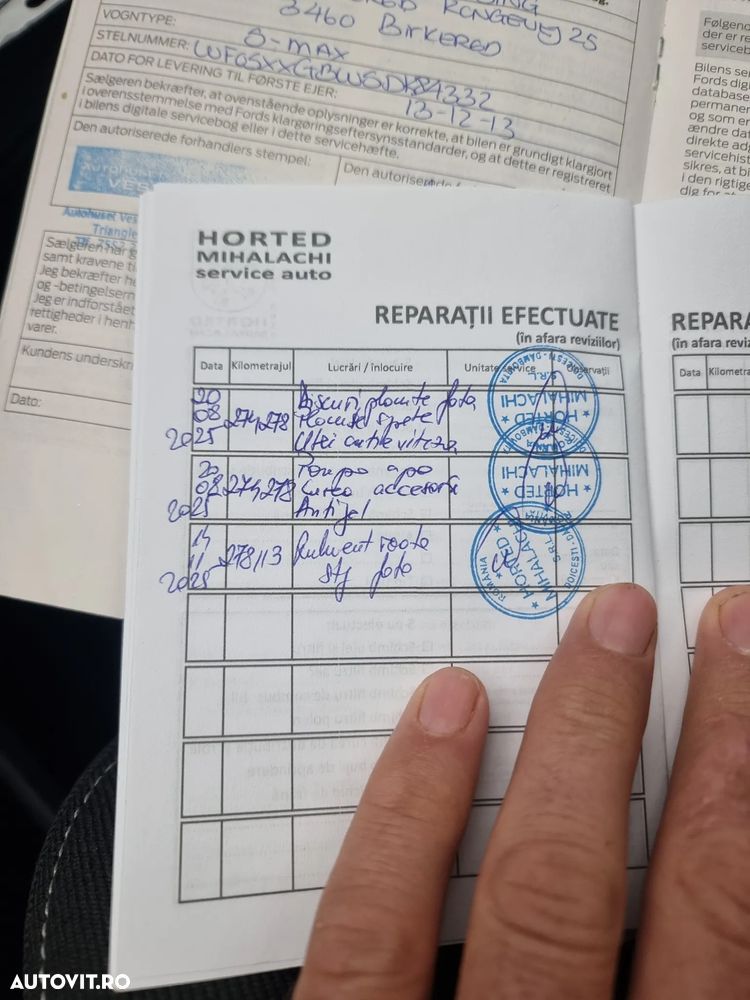 RONGEVEJ 25
3460 BIRKERØD
VOGNTYPE: S-MAX
STELNUMMER: WF0SXXGBWSDK84332
DATO FOR LEVERING TIL FØRSTE EJER: 13-12-13
Sælgeren bekræfter, at ovenstående oplysninger er korrekte, at bilen er grundigt klargjort
i overensstemmelse med Fords klargøringseftersynsstandarder, og at dette er registreret
i bilens digitale servicebog eller i dette servicehæfte.
Den autoriserede forhandlers stempel:
Den autoriserede
Autohuset Ves
Triangle
Sælgeren har g
samt kravene til
Jeg bekræfter he
og -betingelsern
Jeg er indforstået
rettigheder i henh
varer.
Kundens underskri
Dato:
Følgend
der er re
servicebo
Bilens se
Fords digi
database
permanen
og som er
ændre da
direkte adg
servicehist
sikres, at bi
i den rigtige
dig for at
HORTED
MIHALACHI
service auto
REPARAȚII EFECTUATE
(în afara reviziilor)
Data Kilometrajul Lucrări / înlocuire Unitate service Observații
20 08 2025 274278 Discuri placute fata
Placute spate
Ulei cutie viteza
20 08 2025 274278 Pompa apa
Curea accesorii
Antigel
14 11 2025 278113 Rulment roata
stg fata
HORTED
MIHALACHI
S.R.L.
DOICEȘTI - DÂMBOVIȚA
HORTED
MIHALACHI
HORTED
MIHALACHI
S.R.L.
ROMÂNIA
DOICEȘTI - DÂMBOVIȚA
REPARA
(în afara revizi
Data Kilometra
AUTOVIT.RO